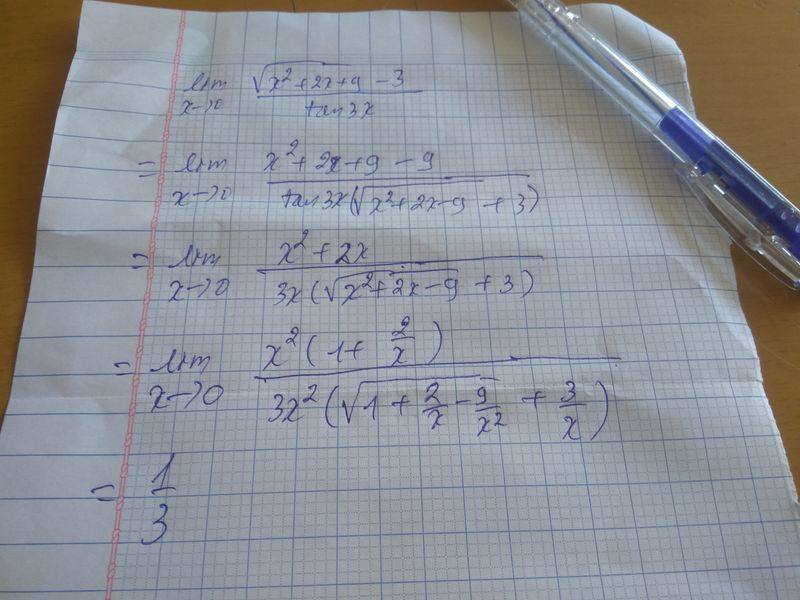 lim x→0 (√(x²+2x+9) − 3) / (tan3x)
= lim x→0 (x²+2x+9−9) / (tan3x(√(x²+2x−9) + 3))
= lim x→0 (x²+2x) / (3x(√(x²+2x−9) + 3))
= lim x→0 (x²(1+ 2/x)) / (3x²(√(1+2/x−9/x²) + 3/x))
= 1/3